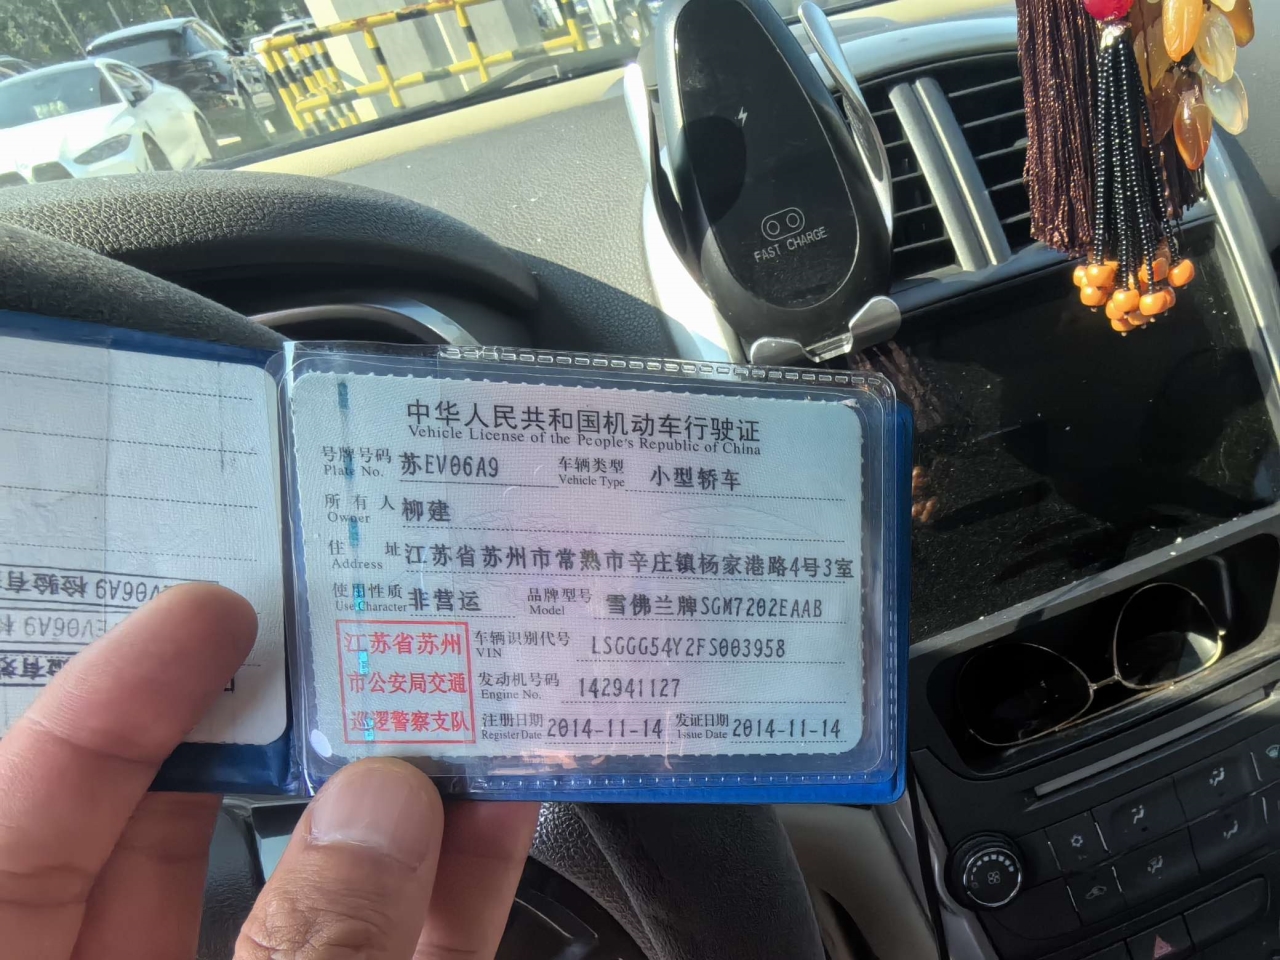 FAST CHARGE
中华人民共和国机动车行驶证
Vehicle License of the People's Republic of China
号牌号码 苏EV06A9 车辆类型 小型轿车
Plate No. Vehicle Type
所有人 柳建
Owner
住址 江苏省苏州市常熟市辛庄镇杨家港路4号3室
Address
使用性质 非营运 品牌型号 雪佛兰牌SGM7202EAAB
Use Character Model
江苏省苏州
市公安局交通
巡逻警察支队
车辆识别代号 LSGGG54Y2FS003958
VIN
发动机号码 142941127
Engine No.
注册日期 2014-11-14 发证日期 2014-11-14
Register Date Issue Date
EV06A9 检验有
EV06A9